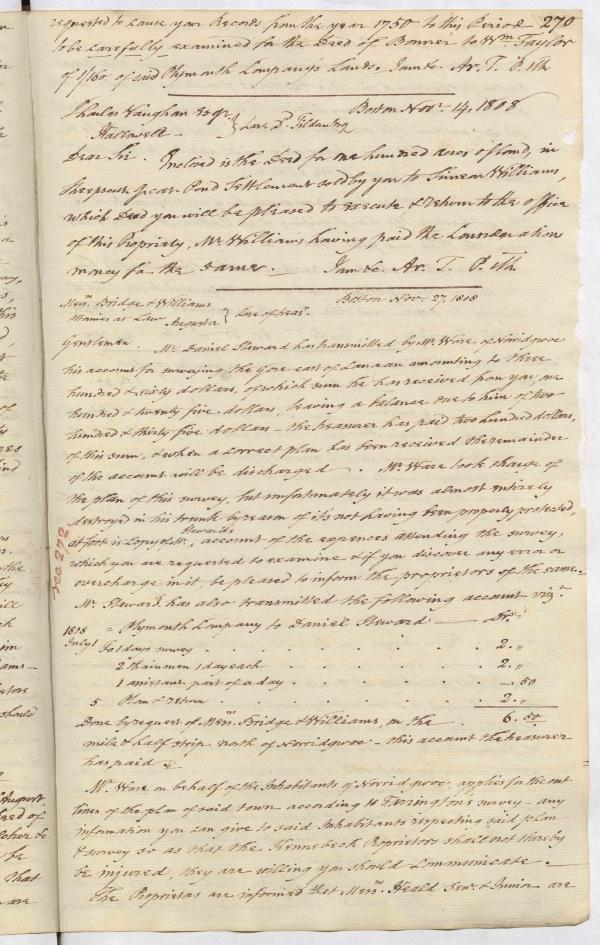 requested to cause your Records from the year 1750 to this Period 270
to be carefully examined for the Deed of Bonner to Wm. Taylor
of 1/160 of said Plymouth Company's Lands. I am &c. Ar. T. P. &c.
Charles Vaughan Esqr. Boston Novr. 14, 1808
Hallowell } Care Dd. Tilden Esq
Dear Sir. Inclosed is the Deed for one hundred acres of land, in
Sheepscut Great Pond Settlement sold by you to Simeon Williams,
which Deed you will be pleased to execute & return to the office
of this Propriety, Mr. Williams having paid the Consideration
money for the same. I am &c. Ar. T. P. &c.
Messrs. Bridge & Williams Boston Nov. 27, 1808
Attornies at Law Augusta } Care of
Gentlemen. Mr. Daniel Steward has transmitted by Mr. Ware of Norridgwoc
his account for surveying the Gore east of Canaan amounting to three
hundred & sixty dollars, of which sum he has received from you, one
hundred & twenty five dollars, leaving a balance due to him of two
hundred & thirty five dollars - the treasurer has paid two hundred dollars,
of this sum, & when a correct plan has been received the remainder
of the account will be discharged. Mr. Ware took charge of
the plan of this survey, but unfortunately it was almost entirely
destroyed in his trunk by reason of its not having been properly protected,
at foot is Copy of Mr. Steward's account of the expences attending the survey,
which you are requested to examine & if you discover any error or
overcharge in it, be pleased to inform the proprietors of the same.
See 272
Mr. Steward has also transmitted the following account vizt.
1808 Plymouth Company to Daniel Steward Dr.
July 1 To 1 days survey 2. "
2 Chainmen 1 day each 2. "
1 assistant part of a day —. 50
5 Plan & return 2. "
Done by request of Messrs. Bridge & Williams, on the 6. 50
mile & half strip north of Norridgwoc - this account the treasurer
has paid
Mr. Ware on behalf of the Inhabitants of Norridgwoc, applies for the out
lines of the plan of said town according to Farrington's survey - any
information you can give to said Inhabitants respecting said plan
& survey so as that the Kennebeck Proprietors shall not thereby
be injured, they are willing you should communicate.
The Proprietors are informed that Messrs. Heald Senr. & Junior are